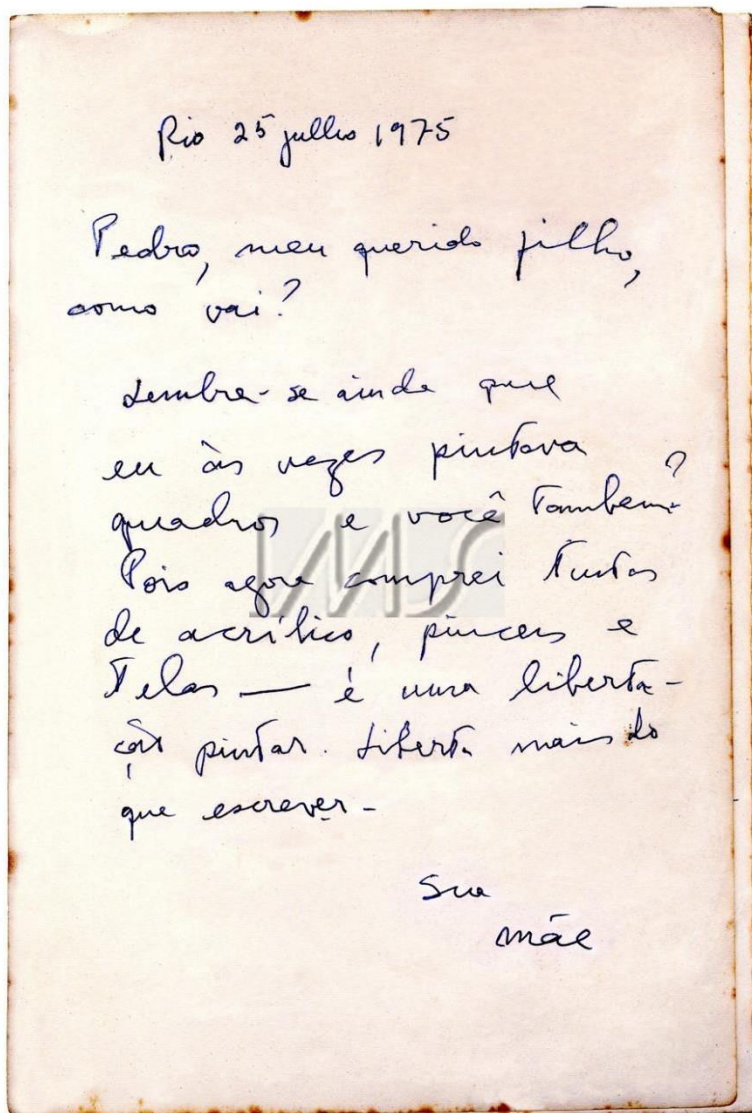 Rio 25 julho 1975
Pedro, meu querido filho,
como vai?
Lembra-se ainda que
eu às vezes pintava
quadros e você também?
Pois agora comprei tintas
de acrílico, pinceis e
telas — é uma liberta-
ção pintar. Liberta mais do
que escrever -
Sua
mãe
IMS